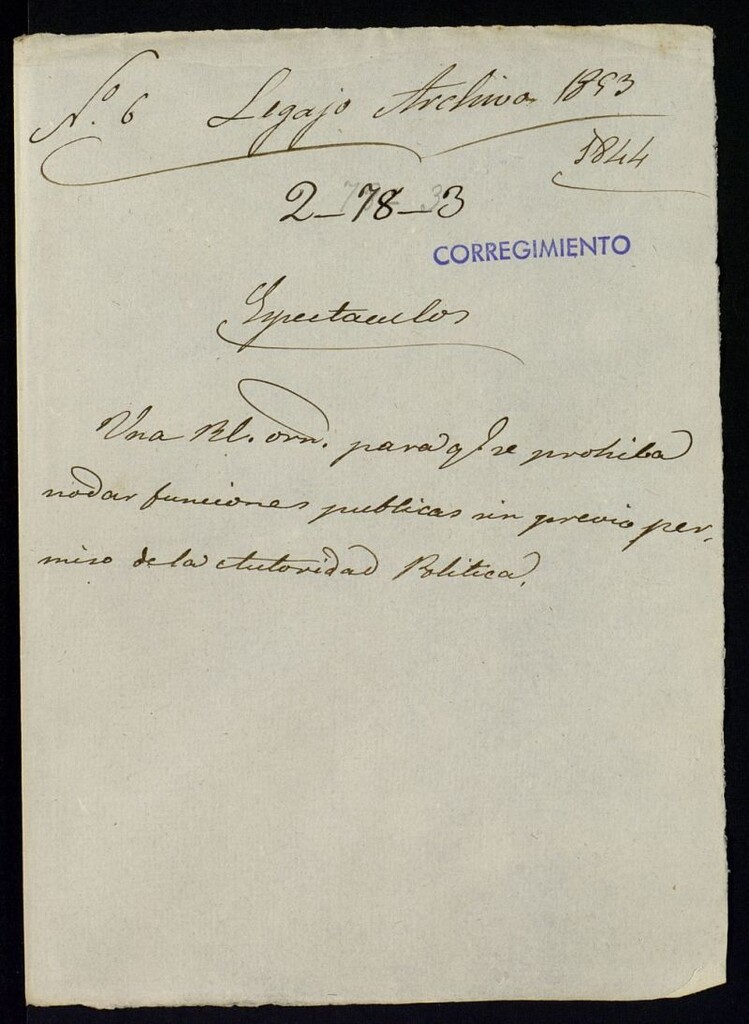 N.º 6 Legajo Archivo 1853
1844
2-78-3
CORREGIMIENTO
Espectaculos
Una Rl. orn. para q.e se prohiba
no dar funciones publicas sin previo per-
miso de la Autoridad Politica.